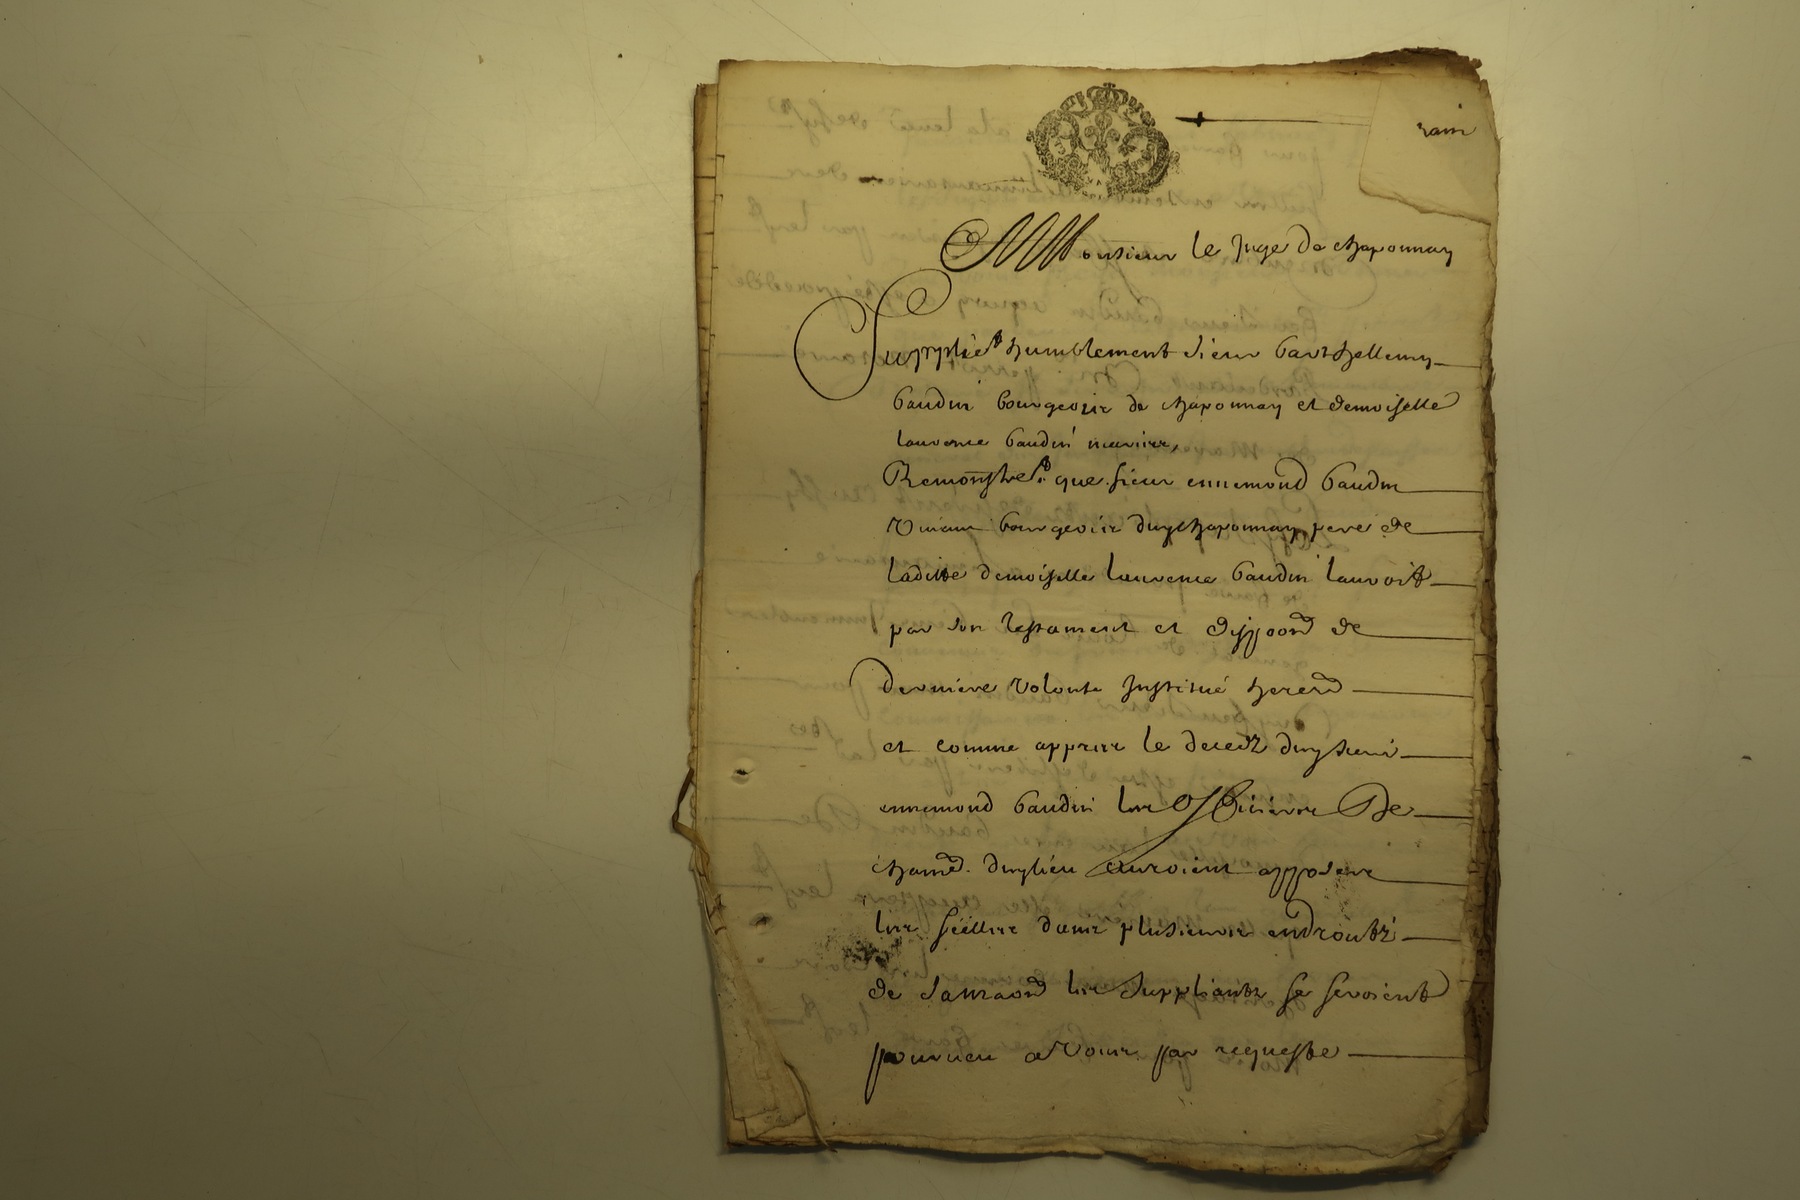 rain
Monsieur le Juge de chaponnay
Supplie&#x1D57; humblement sieur barthellemy
baudin bourgeois de chaponnay et demoiselle
laurence baudin mariés,
Remonstre&#x1D57; que sieur ennemond baudin
vivant bourgeois dudit chaponnay, pere de
laditte demoiselle laurence baudin lauroit
par son testament et dispoon de
derniere volonte Institué hered
et comme appres le decedz duy sieur
ennemond baudin les officiers de
chaned. duy lieu auroient apposere
les séëlles dans plusieurs endroitz
de sa maaond les suppliantz se seroient
pourueu a vous par requeste